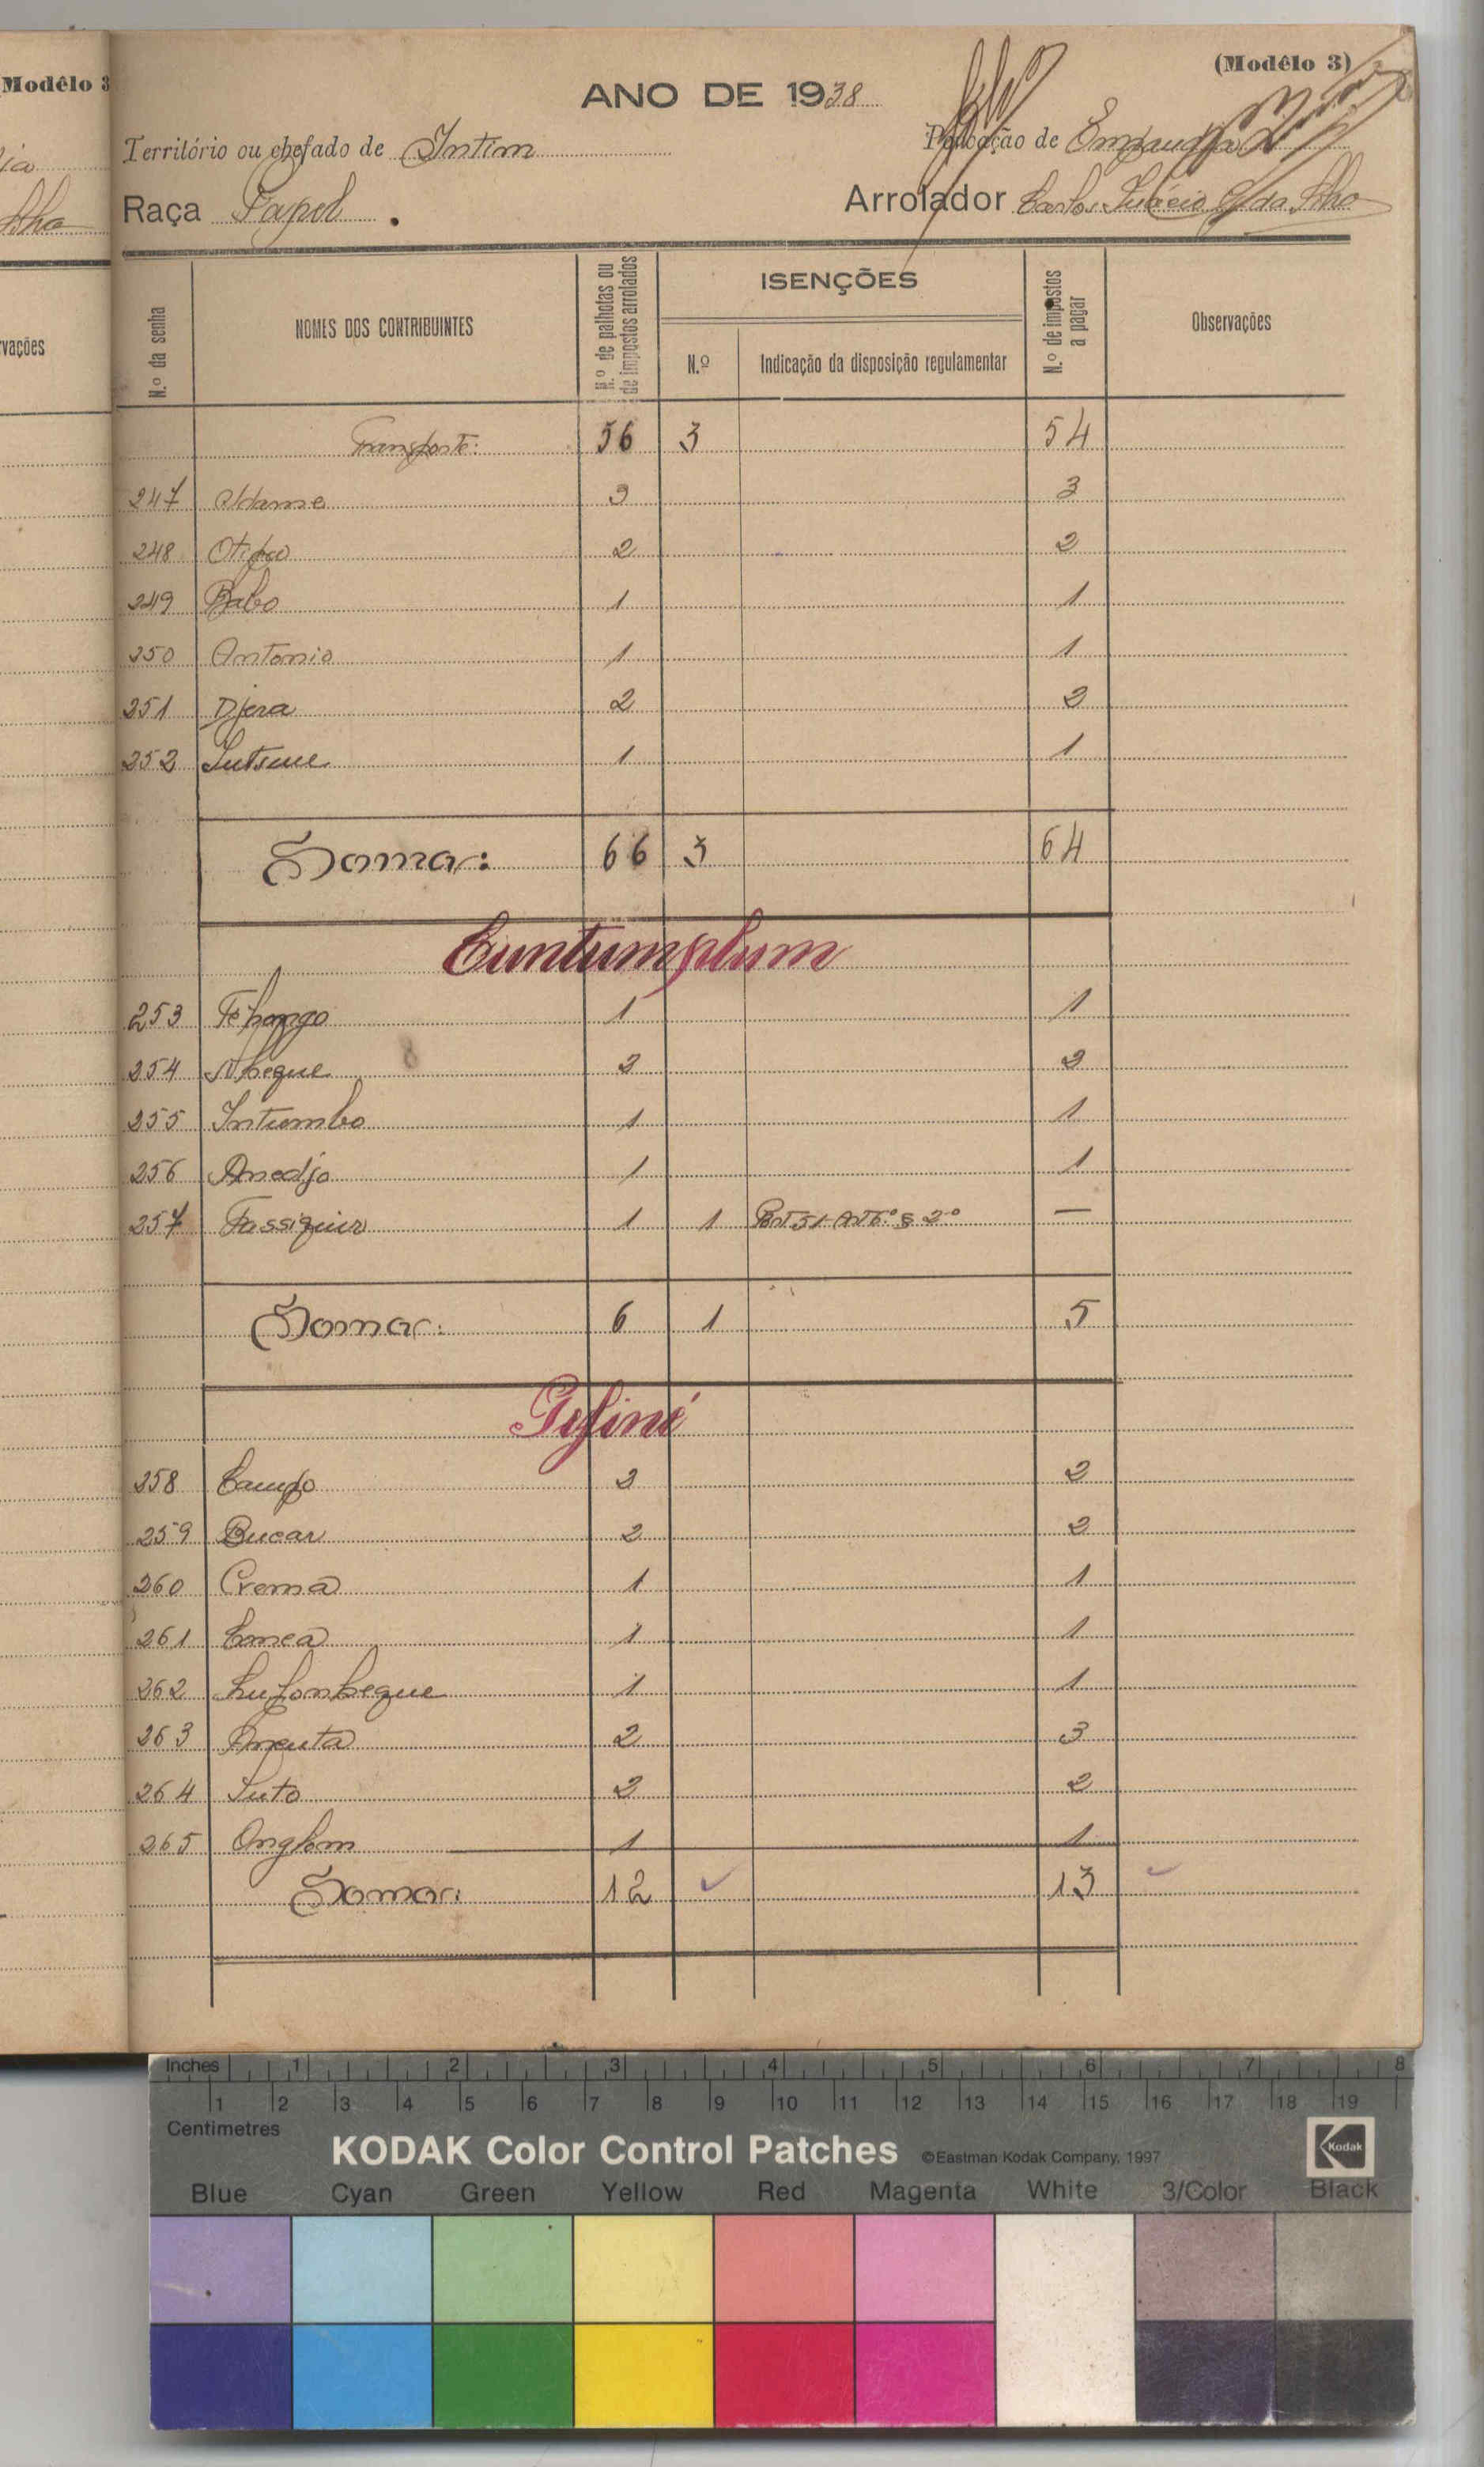 Modêlo 3
(Modêlo 3)
ANO DE 1938
Território ou chefado de Intim
Povoação de
Raça Papel
Arrolador Carlos
N.º da senha
NOMES DOS CONTRIBUINTES
N.º de palhotas ou de impostos arrolados
ISENÇÕES
N.º
Indicação da disposição regulamentar
N.º de impostos a pagar
Observações
vações
Transporte: 56 3 54
247 Adame 3 3
248 2 2
249 Babo 1 1
250 Antonio 1 1
251 Djera 2 2
252 1 1
Soma: 66 3 64
Cuntumplum
253 1 1
254 Nhegue 2 2
255 Intumbo 1 1
256 Anedjo 1 1
257 1 1 Port 51 Art 6º § 2º —
Soma: 6 1 5
258 Campo 2 2
259 Bucar 2 2
260 Cremã 1 1
261 1 1
262 1 1
263 2 3
264 2 2
265 1 1
Soma: 12 13
Inches 1 2 3 4 5 6 7 8
1 2 3 4 5 6 7 8 9 10 11 12 13 14 15 16 17 18 19
Centimetres
KODAK Color Control Patches ©Eastman Kodak Company, 1997 Kodak
Blue Cyan Green Yellow Red Magenta White 3/Color Black